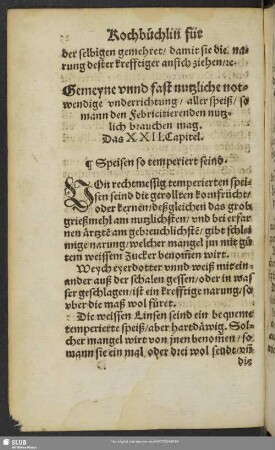 Kochbüchlin für
der selbigen gemehret / damit sie die na-
rung dester kreffteiger ansich ziehen / ⁊c.
Gemeyne vnnd fast nutzliche not-
wendige vnderrichtung / aller speiß / so
mann den Febricitierenden nutz-
lich brauchen mag.
Das XXII. Capitel.
¶ Speisen so temperiert seind.
VOn rechtmessig temperierten spei-
sen seind die gerollten kornfrücht /
oder kernen / deßgleichen das grob
grießmehl am nutzlichsten / vnd bei erfar-
nen ärtzte am gebreuchlichste / gibt schlei-
mige narung / welcher mangel jm mit gü-
tem weissem Zucker benom̃en wirt.
Weych eyerdotter vnnd weiß mit ein-
ander auß der schalen gessen / oder in was-
ser geschlagen / ist ein krefftige narung / so
vber die maß wol füret.
Die weissen Linsen seind ein bequeme
temperierte speiß / aber hartdäwig. Sol-
cher mangel wirt von jnen benom̃en / so
mann sie ein mal oder drei wol seudt / vn̄
die
SLUB